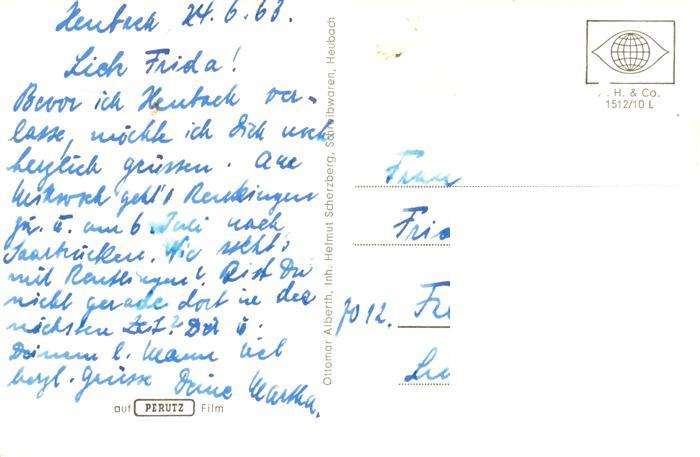 Heubach 24.6.63.
Liebe Frida!
Bevor ich Heubach ver-
lasse, möchte ich Dich noch
herzlich grüssen. Am
Mittwoch geht's Reutlingen
zu. u. am 6 Juli nach
Saarbrücken. Wie steht's
mit Reutlingen? Bist Du
nicht gerade dort in der
nächsten Zeit? Dir u.
Deinem l. Mann viel
herzl. Grüsse Deine Martha.
auf PERUTZ Film
Ottomar Alberth, Inh. Helmut Scherzberg, Schreibwaren, Heubach
. H. & Co.
1512/10 L
Frau
Frid
7012. Fe